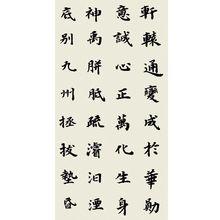 軒轅通變成於華勛
意誠心正萬化生身
神禹胼胝疏瀹汩湮
底別九州拯拔墊昏